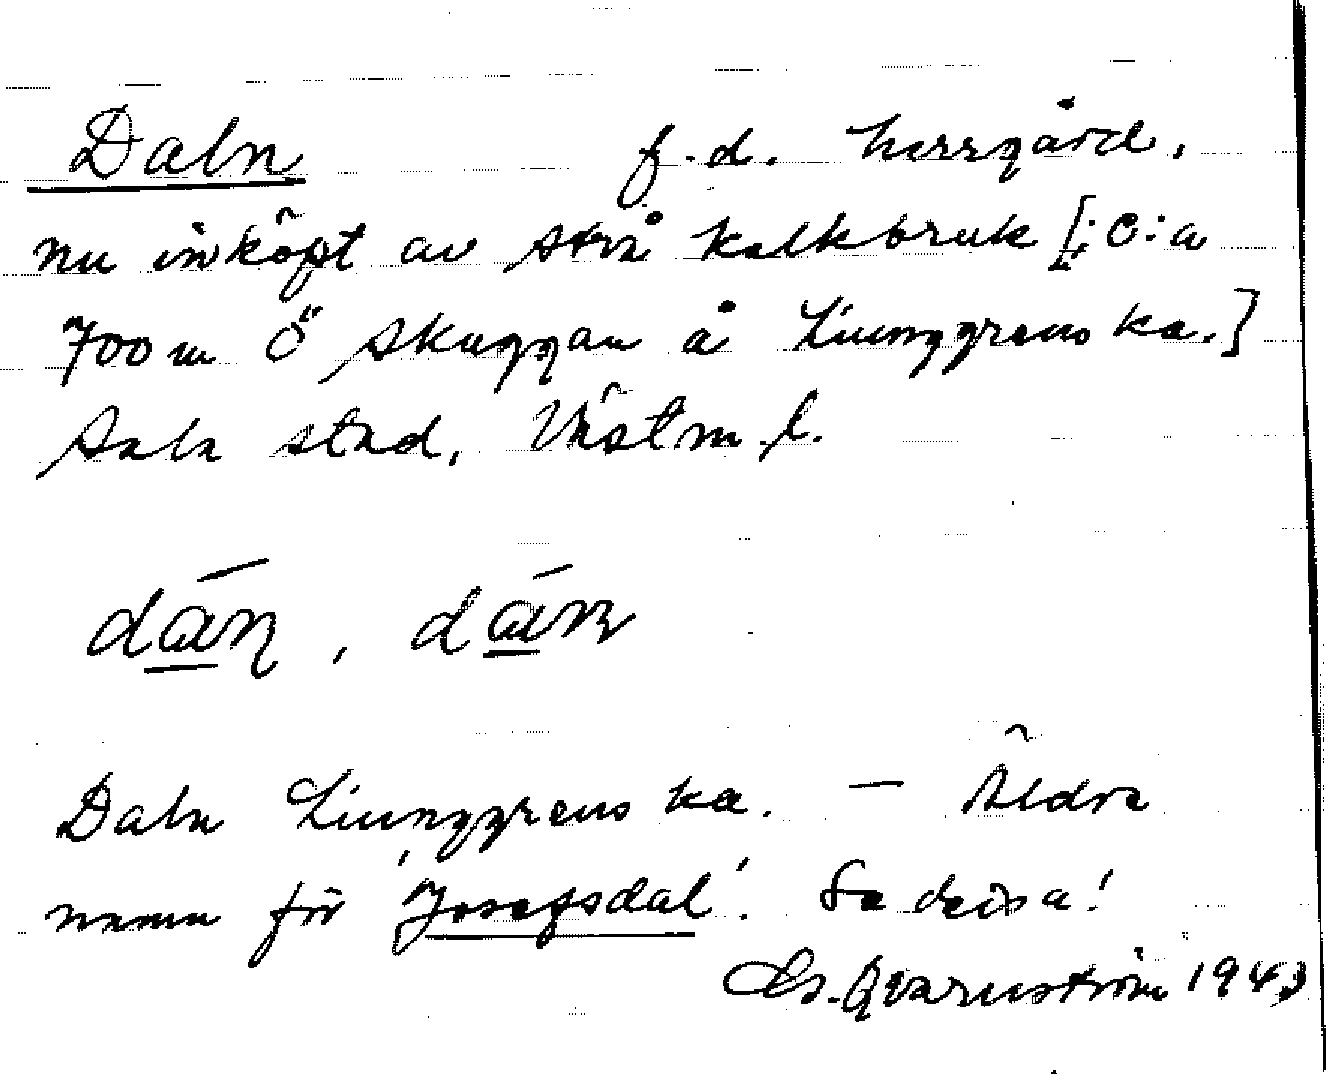 Daln f.d. herrgård,
nu inköpt av Strå kalkbruk [: c:a
700 m Ö Skuggan å Liunggrenska.]
Sala stad, Västm. l.
dān, dān
Daln Liunggrenska. — Äldre
namn för 'Josefsdal'. Se dessa!
Qvarnström 1943